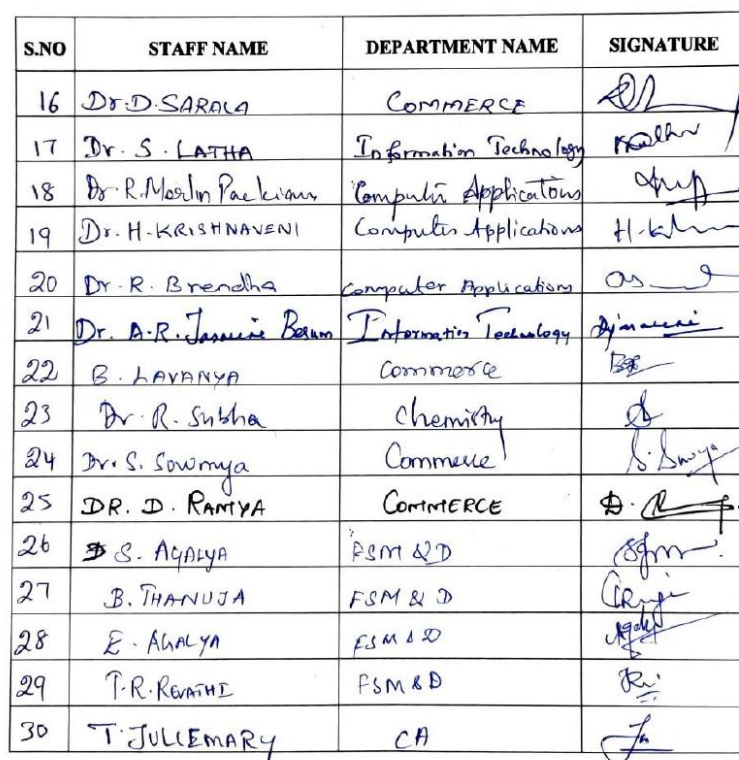 S.NO STAFF NAME DEPARTMENT NAME SIGNATURE
16 Dr. D. SARALA COMMERCE
17 Dr. S. LATHA Information Technology
18 Dr. R. Merlin Packiam Computer Applications
19 Dr. H. KRISHNAVENI Computer Applications H.
20 Dr. R. Brendha Computer Applications
21 Dr. A.R. Jasmine Begum Information Technology
22 B. LAVANYA Commerce
23 Dr. R. Subha Chemistry
24 Dr. S. Sowmya Commerce S.
25 DR. D. RAMYA COMMERCE D.
26 S. AGALYA FSM & D
27 B. THANUJA FSM & D
28 E. AGALYA FSM & D
29 T.R. REVATHI FSM & D
30 T. JULIEMARY CA